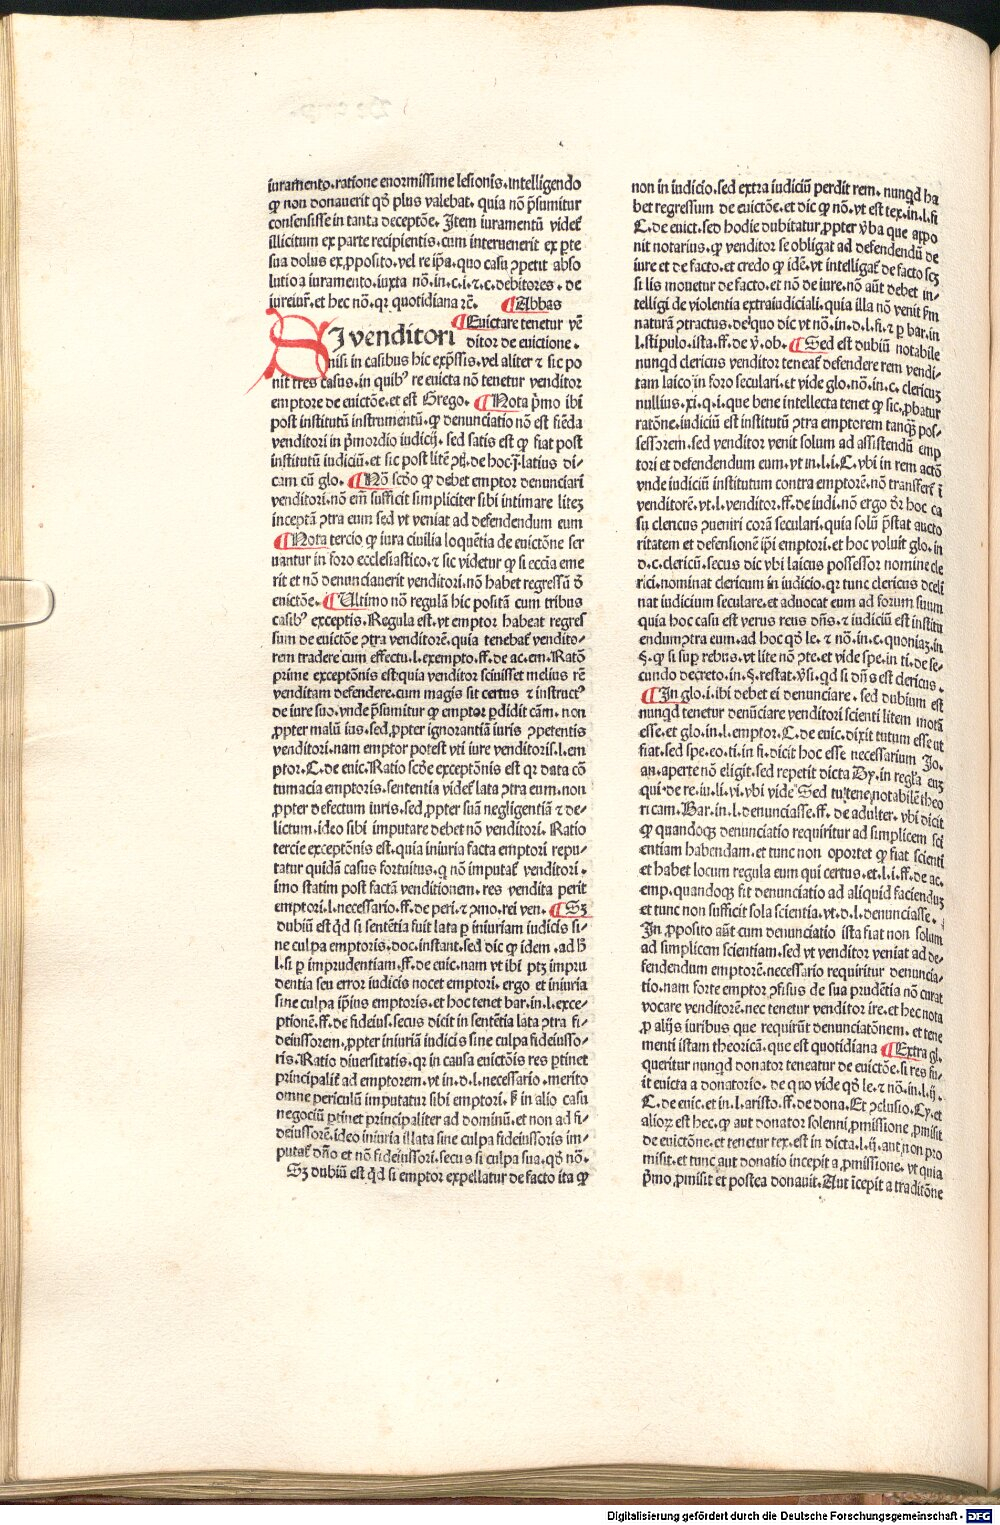 iuramento.ratione enormissime lesionis.intelligendo
ꝙ non donauerit qđ plus valebat. quia nō p̄sumitur
consensisse in tanta deceptōe. Item iuramentū videt̄
illicitum ex parte recipientis.cum interuenerit ex p̱te
sua dolus ex ꝓposito.vel re ip̄a.quo casu ꝯpetit abso
lutio a iuramento.iuxta nō.in.c.i.⁊.c.debitores. de
iureiur̄.et hec nō.qr quotidiana r̄e. ¶Abbas
¶Euictare tenetur vē
SI venditori ditor de euictione.
nisi in casibus hic exp̄ssis.vel aliter ⁊ sic po
nit tres casus.in quibꝰ re euicta nō tenetur venditor
emptore de euictōe.et est Grego. ¶Nota p̄mo ibi
post institutū instrumentū.ꝙ denunciatio nō est fiēda
venditori in p̄mordio iudicij. sed satis est ꝙ fiat post
institutū iudiciū.et sic post litē ꝯtꝫ.de hoc.j̄.latius di-
cam cū glo. ¶Nō scđo ꝙ debet emptor denunciari
venditori.nō em̄ sufficit simpliciter sibi intimare liteꝫ
inceptā ꝯtra eum sed vt veniat ad defendendum eum
¶Nota tercio ꝙ iura ciuilia loquētia de euictōne ser
uantur in foro ecclesiastico.⁊ sic videtur ꝙ si eccīa eme
rit et nō denunciauerit venditori.nō habet regressū đ
euictōe. ¶Ultimo nō regulā hic positā cum tribus
casibꝰ exceptis.Regula est.vt emptor habeat regres
sum de euictōe ꝯtra venditorē.quia tenebat̄ vendito-
rem tradere cum effectu.l.exempto.ff.de ac.em.Ratō
prime exceptōnis est:quia venditor sciuisset melius rē
venditam defendere.cum magis sit certus ⁊ instructꝰ
de iure suo.vnde p̄sumitur ꝙ emptor ꝑdidit cām. non
ꝓpter malū ius.sed ꝓpter ignorantiā iuris ꝯpetentis
venditori.nam emptor potest vti iure venditoris.l.em
ptor.C.de euic.Ratio scđe exceptōnis est qr data cō
tumacia emptoris.sententia videt̄ lata ꝯtra eum.non
ꝓpter defectum iuris.sed ꝓpter suā negligentiā ⁊ de-
lictum.ideo sibi imputare debet nō venditori. Ratio
tercie exceptōnis est.quia iniuria facta emptori repu-
tatur quidā casus fortuitus.q nō imputat̄ venditori.
imo statim post factā venditionem.res vendita perit
emptori.l.necessario.ff.de peri.⁊ ꝯmo.rei ven. ¶Sꝫ
dubiū est qđ si sentētia fuit lata ꝑ iniuriam iudicis si-
ne culpa emptoris.doc.instant.sed dic ꝙ idem. ad h̄
l.si ꝑ imprudentiam.ff.de euic.nam vt ibi ptꝫ impru
dentia seu error iudicis nocet emptori. ergo et iniuria
sine culpa ip̄ius emptoris.et hoc tenet bar.in.l.exce-
ptionē.ff.de fideius.secus dicit in sentētia lata ꝯtra fi-
deiussorem.ꝓpter iniuriā iudicis sine culpa fideiusso-
ris.Ratio diuersitatis.qr in causa euictōis res ꝑtinet
principalit̄ ad emptorem.vt in.d.l.necessario.merito
omne periculū imputatur sibi emptori. s̄ in alio casu
negociū ꝑtinet principaliter ad dominū.et non ad fi-
deiussorē.ideo iniuria illata sine culpa fideiussoris im-
putat̄ dn̄o et nō fideiussori.secus si culpa sua.qđ nō.
Sꝫ dubiū est qđ si emptor expellatur de facto ita ꝙ
non in iudicio.sed extra iudiciū perdit rem. nunqđ ha
bet regressum de euictōe.et dic ꝙ nō.vt est tex.in.l.fi
C.de euict.sed hodie dubitatur ꝓpter v̄ba que appo
nit notarius.ꝙ venditor se obligat ad defendendū de
iure et de facto.et credo ꝙ idē.vt intelligat̄ de facto scꝫ
si lis mouetur de facto.et nō de iure.nō aūt debet in-
telligi de violentia extraiudiciali.quia illa nō venit ẜm
naturā ꝯtractus.de quo dic vt nō.in.d.l.fi.⁊ ꝑ bar.in
l.stipulo.ista.ff.de v̄.ob. ¶Sed est dubiū notabile
nunqđ clericus venditor teneat̄ defendere rem vendi-
tam laico in foro seculari.et vide glo.nō.in.c.clericuꝫ
nullius.xi.q.i.que bene intellecta tenet ꝙ sic.ꝓbatur
ratōne.iudiciū est institutū ꝯtra emptorem tanqꝫ pos-
sessorem.sed venditor venit solum ad assistendū emp
tori et defendendum eum.vt in.l.i.C.vbi in rem actō
vnde iudiciū institutum contra emptorē.nō transfert̄ ī
venditorē.vt.l.venditor.ff.de iudi.nō ergo đr hoc ca
su clericus ꝯueniri corā seculari.quia solū p̄stat aucto
ritatem et defensionē ip̄i emptori.et hoc voluit glo.in
d.c.clericū.secus dic vbi laicus possessor nomine cle
rici.nominat clericum in iudicio.qr tunc clericus decli
nat iudicium seculare.et aduocat eum ad forum suum
quia hoc casu est verus reus dn̄s.⁊ iudiciū est institu
endum ꝯtra eum.ad hoc qđ le.⁊ nō.in.c.quoniaꝫ.in
§.ꝙ si suꝑ rebus.vt lite nō ꝯte.et vide spe.in ti.de se-
cundo decreto.in.§.restat.v̄si.qđ si dn̄s est clericus.
¶In glo.i.ibi debet ei denunciare. sed dubium est
nunqđ tenetur denūciare venditori scienti litem motā
esse.et glo.in.l.emptor.C.de euic.dixit tutum esse ut
fiat.sed spe.co.ti.in fi.dicit hoc esse necessarium Jo.
an.aperte nō eligit.sed repetit dicta Dy.in regl̄a euꝫ
qui.de re.iu.li.vi.vbi vide Sed tu tene notabilē theo
ricam.Bar.in.l.denunciasse.ff.de adulter. vbi dicit
ꝙ quandoqꝫ denunciatio requiritur ad simplicem sci
entiam habendam.et tunc non oportet ꝙ fiat scienti
et habet locum regula eum qui certus.et.l.i.ff.de ac.
emp.quandoqꝫ fit denunciatio ad aliquid facienduꝫ
et tunc non sufficit sola scientia.vt.d.l.denunciasse.
In ꝓposito aūt cum denunciatio ista fiat non solum
ad simplicem scientiam.sed vt venditor veniat ad de-
fendendum emptorē.necessario requiritur denuncia-
tio.nam forte emptor ꝯfisus de sua prudētia nō curat
vocare venditorē.nec tenetur venditor ire.et hec nota
ꝓ alijs iuribus que requirūt denunciatōnem. et tene
menti istam theoricā.que est quotidiana ¶Extra gl.
queritur nunqđ donator teneatur de euictōe.si res fu-
it euicta a donatorio. de quo vide qđ le.⁊ nō.in.l.ij.
C.de euic.et in.l.aristo.ff.de dona.Et ꝯclusio.Cy.et
alioꝝ est hec.ꝙ aut donator solenni ꝓmissione ꝓmisit
de euictōne.et tenetur tex.est in dicta.l.ij.aut non pro
misit.et tunc aut donatio incepit a ꝓmissione. vt quia
p̄mo ꝓmisit et postea donauit.Aut īcepit a traditōne
Digitalisierung gefördert durch die Deutsche Forschungsgemeinschaft - DFG